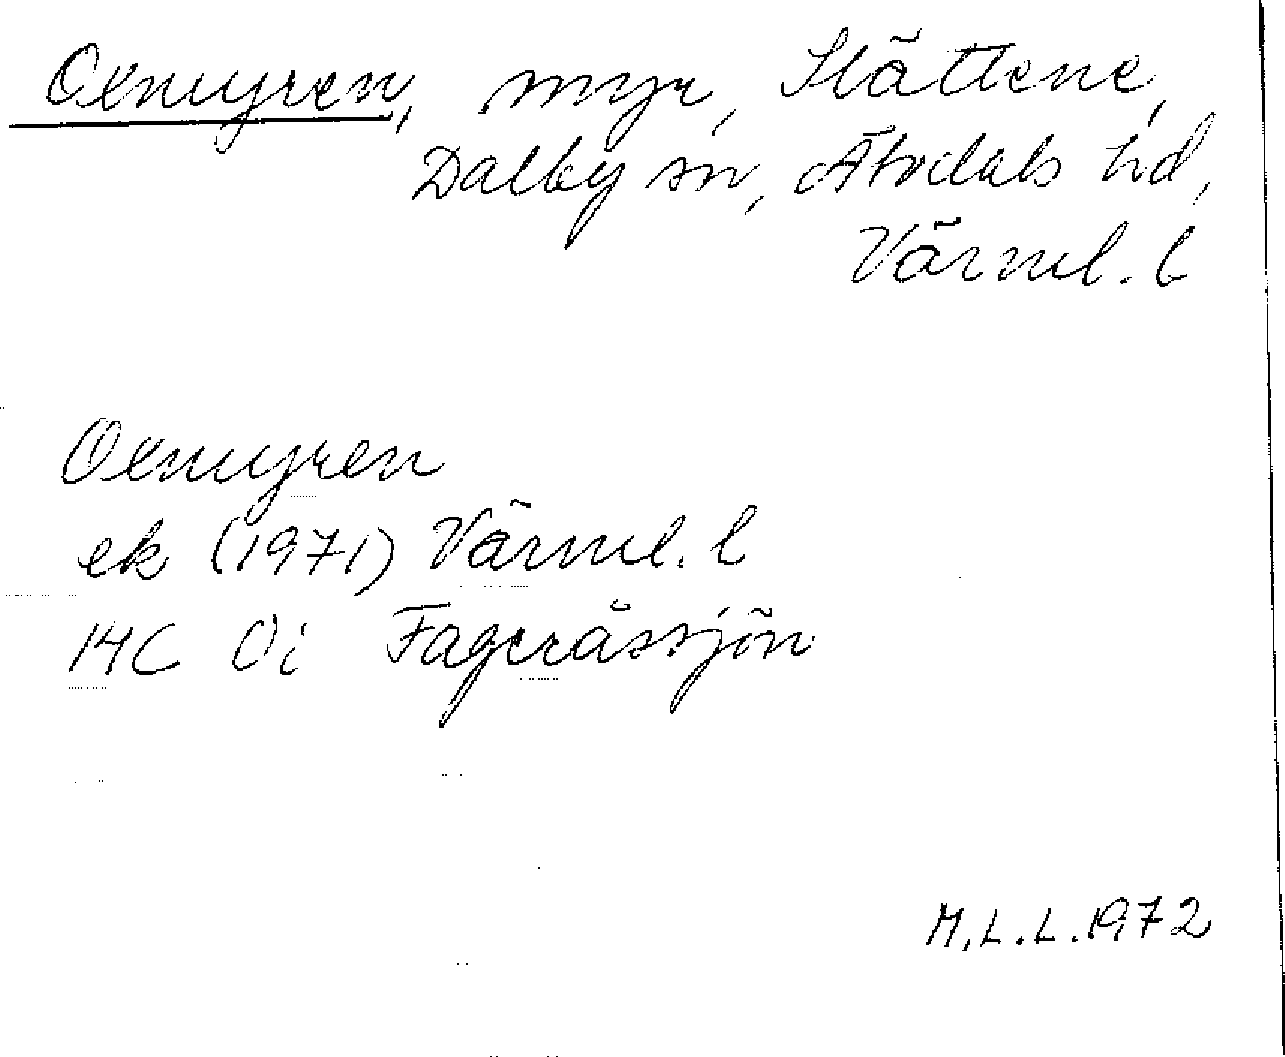 Oenmyren, myr, Slättene,
Dalby sn, Älvdals hd,
Värml. l
Oenmyren
ek (1971) Värml. l
14C 0i Fageråssjön
M.L.L. 1972